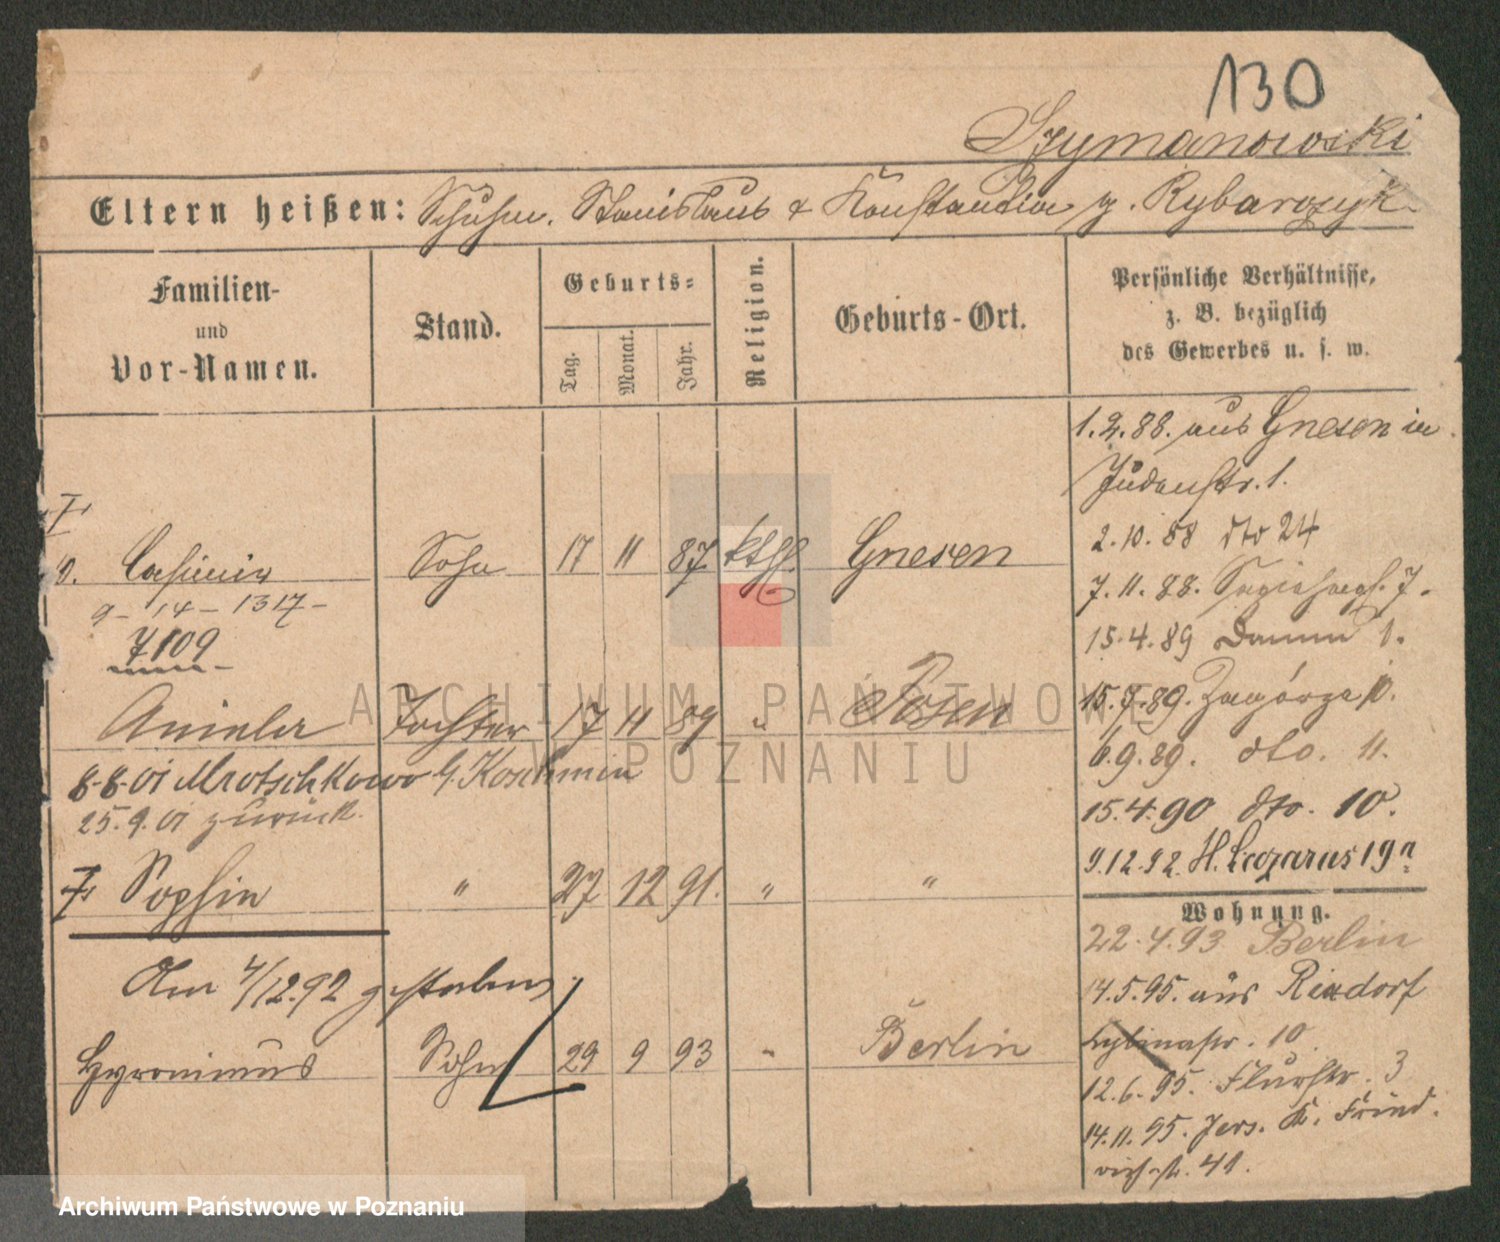 130
Szymanowski
Eltern heißen: Schuhm. Stanislaus & Konstantia g. Rybarczyk
Familien-
und
Vor-Namen.
Stand.
Geburts-
Tag.
Monat.
Jahr.
Religion.
Geburts-Ort.
Persönliche Verhältnisse,
z. B. bezüglich
des Gewerbes u. s. w.
1.2.88. aus Gnesen in
Judenstr. 1.
2.10.88 dto 24
Casimir Sohn 17 11 87. kthl. Gnesen
7.11.88. 7.
9 - 14 - 1317 -
7109
15.4.89 Damm 1.
Aniela Tochter 17 11 89 " Posen
15.7.89. Zagórze 10.
8-8-01 Mrotschkowo b. Koschmin
6.9.89. dto. 11.
25.9.01 zurück.
15.4.90 dto. 10.
9.12.92. St. Lazarus 19a
Sophie " 27 12 91. " "
Wohnung.
22.4.93 Berlin
Am 4/12.92 gestorben
14.5.95. aus Rixdorf
10.
Hyronimus Sohn 29 9 93 " Berlin
12.6.95. Flurstr. 3
14.11.95. Jers. K. Fried-
rich-st. 41.
ARCHIWUM PAŃSTWOWE
W POZNANIU
Archiwum Państwowe w Poznaniu